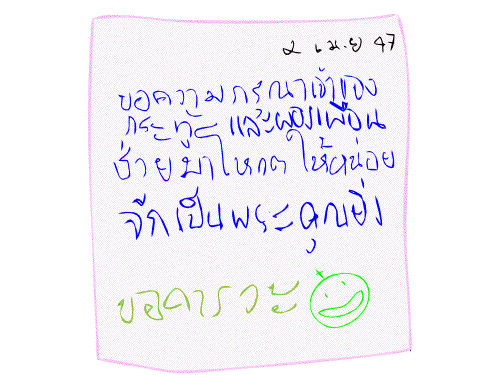 2 เม.ย 47
ขอความกรุณาเจ้าของ
กระทู้ และผองเพื่อน
ช่วยมาโหวต ให้หน่อย
จักเป็นพระคุณยิ่ง
ขอคารวะ